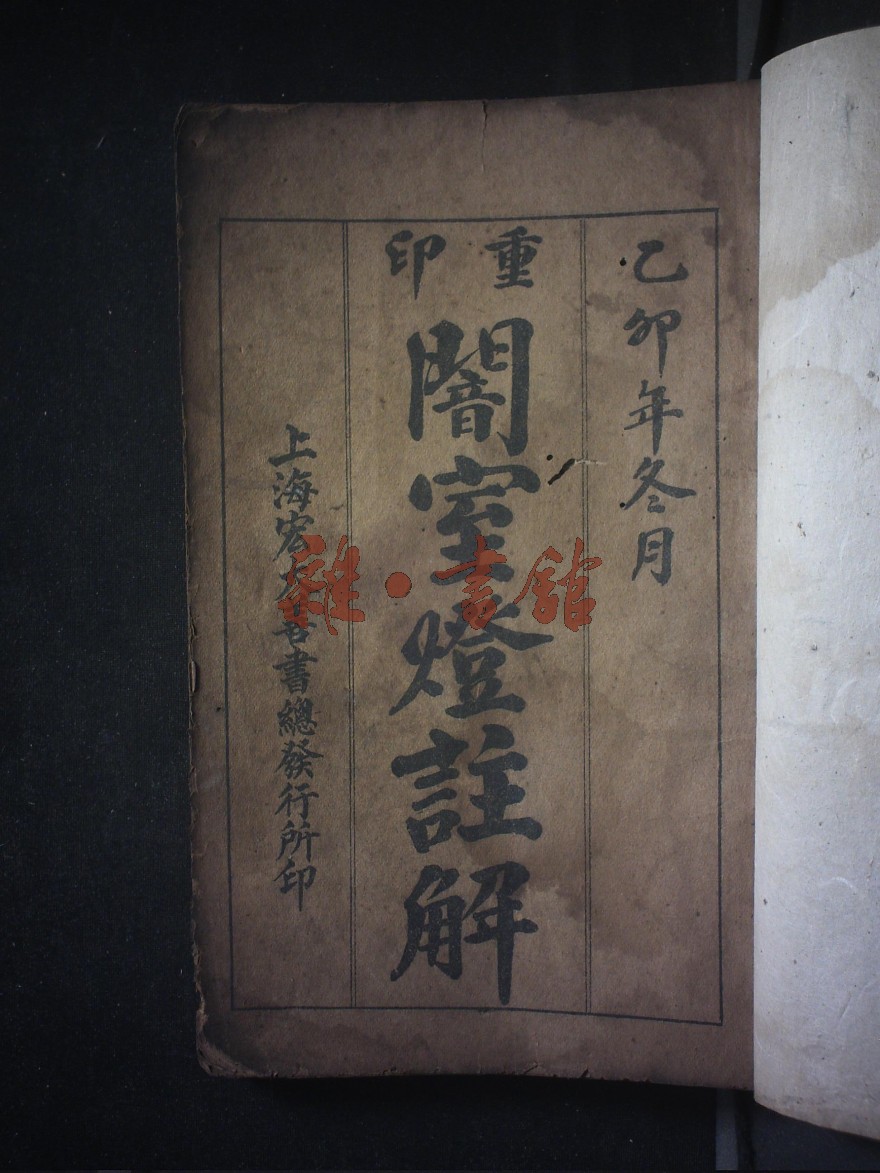 乙卯年冬月
重印
闇室燈註解
上海宏大善書總發行所印
雜·書館